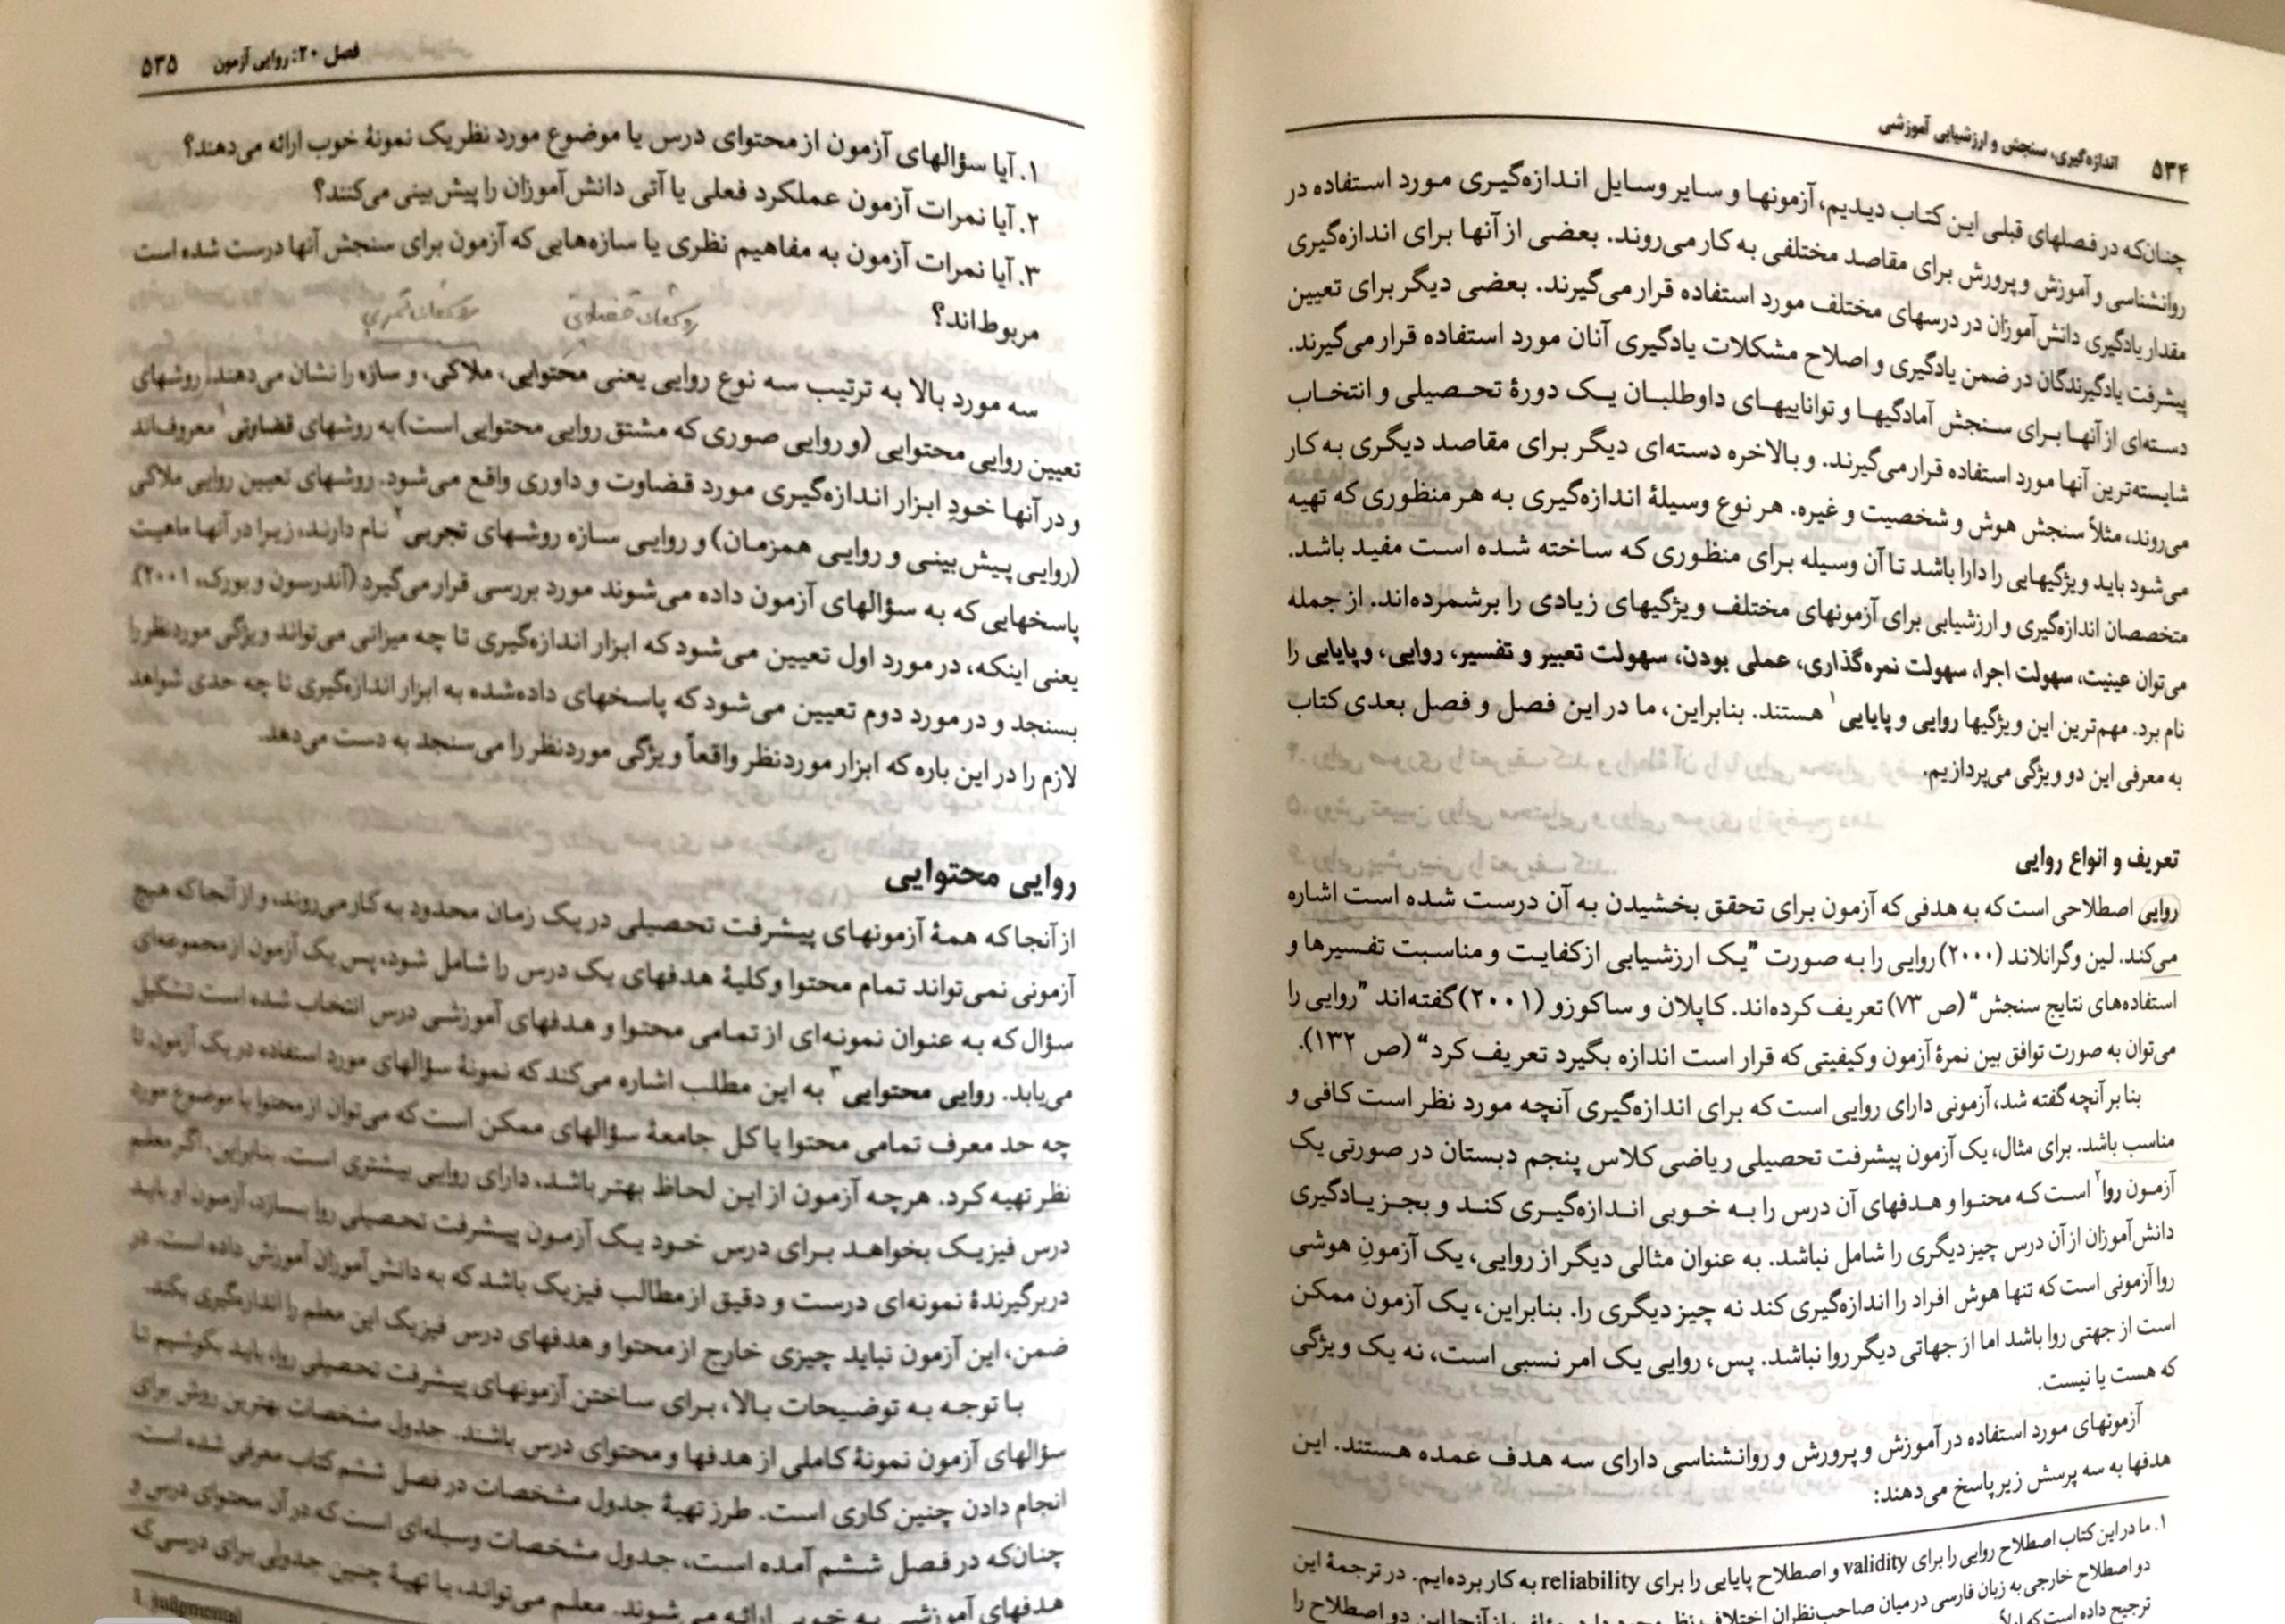 ۵۳۴ اندازه‌گیری، سنجش و ارزشیابی آموزشی
چنان‌که در فصلهای قبلی این کتاب دیدیم، آزمونها و سایر وسایل اندازه‌گیری مورد استفاده در
روانشناسی و آموزش و پرورش برای مقاصد مختلفی به کار می‌روند. بعضی از آنها برای اندازه‌گیری
مقدار یادگیری دانش‌آموزان در درسهای مختلف مورد استفاده قرار می‌گیرند. بعضی دیگر برای تعیین
پیشرفت یادگیرندگان در ضمن یادگیری و اصلاح مشکلات یادگیری آنان مورد استفاده قرار می‌گیرند.
دسته‌ای از آنها برای سنجش آمادگیها و تواناییهای داوطلبان یک دورهٔ تحصیلی و انتخاب
شایسته‌ترین آنها مورد استفاده قرار می‌گیرند. و بالاخره دسته‌ای دیگر برای مقاصد دیگری به کار
می‌روند، مثلاً سنجش هوش و شخصیت و غیره. هر نوع وسیلهٔ اندازه‌گیری به هر منظوری که تهیه
می‌شود باید ویژگیهایی را دارا باشد تا آن وسیله برای منظوری که ساخته شده است مفید باشد.
متخصصان اندازه‌گیری و ارزشیابی برای آزمونهای مختلف ویژگیهای زیادی را برشمرده‌اند. از جمله
می‌توان عینیت، سهولت اجرا، سهولت نمره‌گذاری، عملی بودن، سهولت تعبیر و تفسیر، روایی، و پایایی را
نام برد. مهم‌ترین این ویژگیها روایی و پایایی۱ هستند. بنابراین، ما در این فصل و فصل بعدی کتاب
به معرفی این دو ویژگی می‌پردازیم.
تعریف و انواع روایی
روایی اصطلاحی است که به هدفی که آزمون برای تحقق بخشیدن به آن درست شده است اشاره
می‌کند. لین و گرانلاند (۲۰۰۰) روایی را به صورت ”یک ارزشیابی از کفایت و مناسبت تفسیرها و
استفاده‌های نتایج سنجش“ (ص ۷۳) تعریف کرده‌اند. کاپلان و ساکوزو (۲۰۰۱) گفته‌اند ”روایی را
می‌توان به صورت توافق بین نمرهٔ آزمون و کیفیتی که قرار است اندازه بگیرد تعریف کرد“ (ص ۱۳۲).
بنا بر آنچه گفته شد، آزمونی دارای روایی است که برای اندازه‌گیری آنچه مورد نظر است کافی و
مناسب باشد. برای مثال، یک آزمون پیشرفت تحصیلی ریاضی کلاس پنجم دبستان در صورتی یک
آزمون روا۲ است که محتوا و هدفهای آن درس را به خوبی اندازه‌گیری کند و بجز یادگیری
دانش‌آموزان از آن درس چیز دیگری را شامل نباشد. به عنوان مثالی دیگر از روایی، یک آزمونِ هوشی
روا آزمونی است که تنها هوش افراد را اندازه‌گیری کند نه چیز دیگری را. بنابراین، یک آزمون ممکن
است از جهتی روا باشد اما از جهاتی دیگر روا نباشد. پس، روایی یک امر نسبی است، نه یک ویژگی
که هست یا نیست.
آزمونهای مورد استفاده در آموزش و پرورش و روانشناسی دارای سه هدف عمده هستند. این
هدفها به سه پرسش زیر پاسخ می‌دهند:
۱. ما در این کتاب اصطلاح روایی را برای validity و اصطلاح پایایی را برای reliability به کار برده‌ایم. در ترجمهٔ این
دو اصطلاح خارجی به زبان فارسی در میان صاحب‌نظران اختلاف نظر
ترجیح داده است که
فصل ۲۰: روایی آزمون ۵۳۵
۱. آیا سؤالهای آزمون از محتوای درس یا موضوع مورد نظر یک نمونهٔ خوب ارائه می‌دهند؟
۲. آیا نمرات آزمون عملکرد فعلی یا آتی دانش‌آموزان را پیش‌بینی می‌کنند؟
۳. آیا نمرات آزمون به مفاهیم نظری یا سازه‌هایی که آزمون برای سنجش آنها درست شده است
مربوط‌اند؟
سه مورد بالا به ترتیب سه نوع روایی یعنی محتوایی، ملاکی، و سازه را نشان می‌دهند. روشهای
تعیین روایی محتوایی (و روایی صوری که مشتق روایی محتوایی است) به روشهای قضاوتی۱ معروف‌اند
و در آنها خودِ ابزار اندازه‌گیری مورد قضاوت و داوری واقع می‌شود. روشهای تعیین روایی ملاکی
(روایی پیش‌بینی و روایی همزمان) و روایی سازه روشهای تجربی۲ نام دارند، زیرا در آنها ماهیت
پاسخهایی که به سؤالهای آزمون داده می‌شوند مورد بررسی قرار می‌گیرد (آندرسون و بورک، ۲۰۰۱).
یعنی اینکه، در مورد اول تعیین می‌شود که ابزار اندازه‌گیری تا چه میزانی می‌تواند ویژگی موردنظر را
بسنجد و در مورد دوم تعیین می‌شود که پاسخهای داده‌شده به ابزار اندازه‌گیری تا چه حدی شواهد
لازم را در این باره که ابزار موردنظر واقعاً ویژگی موردنظر را می‌سنجد به دست می‌دهد.
روایی محتوایی
از آنجا که همهٔ آزمونهای پیشرفت تحصیلی در یک زمان محدود به کار می‌روند، و از آنجا که هیچ
آزمونی نمی‌تواند تمام محتوا و کلیهٔ هدفهای یک درس را شامل شود، پس یک آزمون از مجموعه‌ای
سؤال که به عنوان نمونه‌ای از تمامی محتوا و هدفهای آموزشی درس انتخاب شده است تشکیل
می‌یابد. روایی محتوایی۳ به این مطلب اشاره می‌کند که نمونهٔ سؤالهای مورد استفاده در یک آزمون تا
چه حد معرف تمامی محتوا یا کل جامعهٔ سؤالهای ممکن است که می‌توان از محتوا یا موضوع مورد
نظر تهیه کرد. هرچه آزمون از این لحاظ بهتر باشد، دارای روایی بیشتری است. بنابراین، اگر معلم
درس فیزیک بخواهد برای درس خود یک آزمون پیشرفت تحصیلی روا بسازد، آزمون او باید
دربرگیرندهٔ نمونه‌ای درست و دقیق از مطالب فیزیک باشد که به دانش‌آموزان آموزش داده است. در
ضمن، این آزمون نباید چیزی خارج از محتوا و هدفهای درس فیزیک این معلم را اندازه‌گیری بکند.
با توجه به توضیحات بالا، برای ساختن آزمونهای پیشرفت تحصیلی روا، باید بکوشیم تا
سؤالهای آزمون نمونهٔ کاملی از هدفها و محتوای درس باشند. جدول مشخصات بهترین روش برای
انجام دادن چنین کاری است. طرز تهیهٔ جدول مشخصات در فصل ششم کتاب معرفی شده است.
چنان‌که در فصل ششم آمده است، جدول مشخصات وسیله‌ای است که در آن محتوای درس و
هدفهای آموزشی به خوبی ارائه می‌شوند. معلم می‌تواند، با تهیهٔ چنین جدولی برای درسی که
1. judgmental